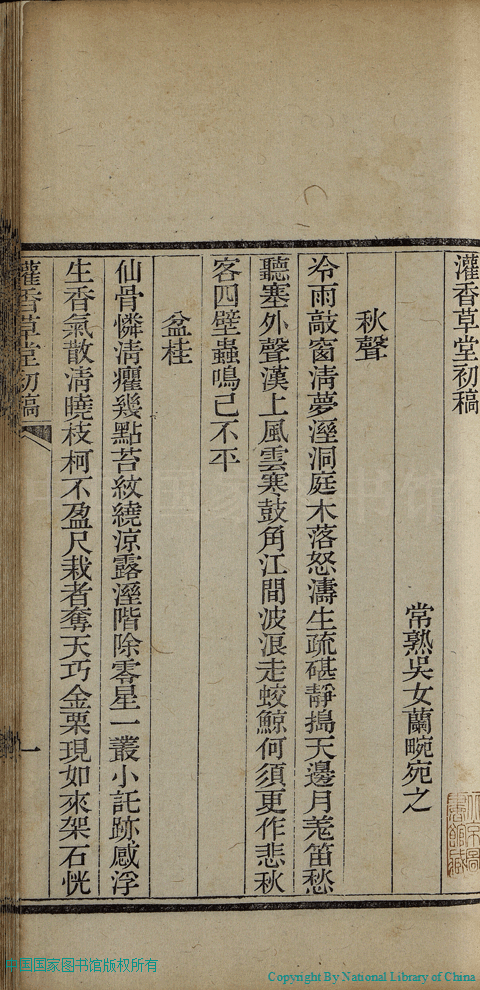 灌香草堂初稿
常熟吳女蘭畹宛之
秋聲
冷雨敲窗清夢溼洞庭木落怒濤生疏碪靜搗天邊月羌笛愁
聽塞外聲漢上風雲寒鼓角江間波浪走蛟鯨何須更作悲秋
客四壁蟲鳴已不平
盆桂
仙骨憐清癯幾點苔紋繞涼露溼階除零星一叢小託跡感浮
生香氣散清曉枝柯不盈尺栽者奪天巧金粟現如來架石恍
灌香草堂初稿
一
中国国家图书馆版权所有
Copyright By National Library of China